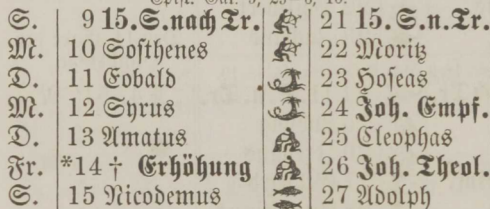 S. 9 15. S. nach Tr. 21 15. S. n. Tr.
M. 10 Sosthenes 22 Moritz
D. 11 Eobald 23 Hoseas
M. 12 Syrus 24 Joh. Empf.
D. 13 Amatus 25 Cleophas
Fr. *14 † Erhöhung 26 Joh. Theol.
S. 15 Nicodemus 27 Adolph